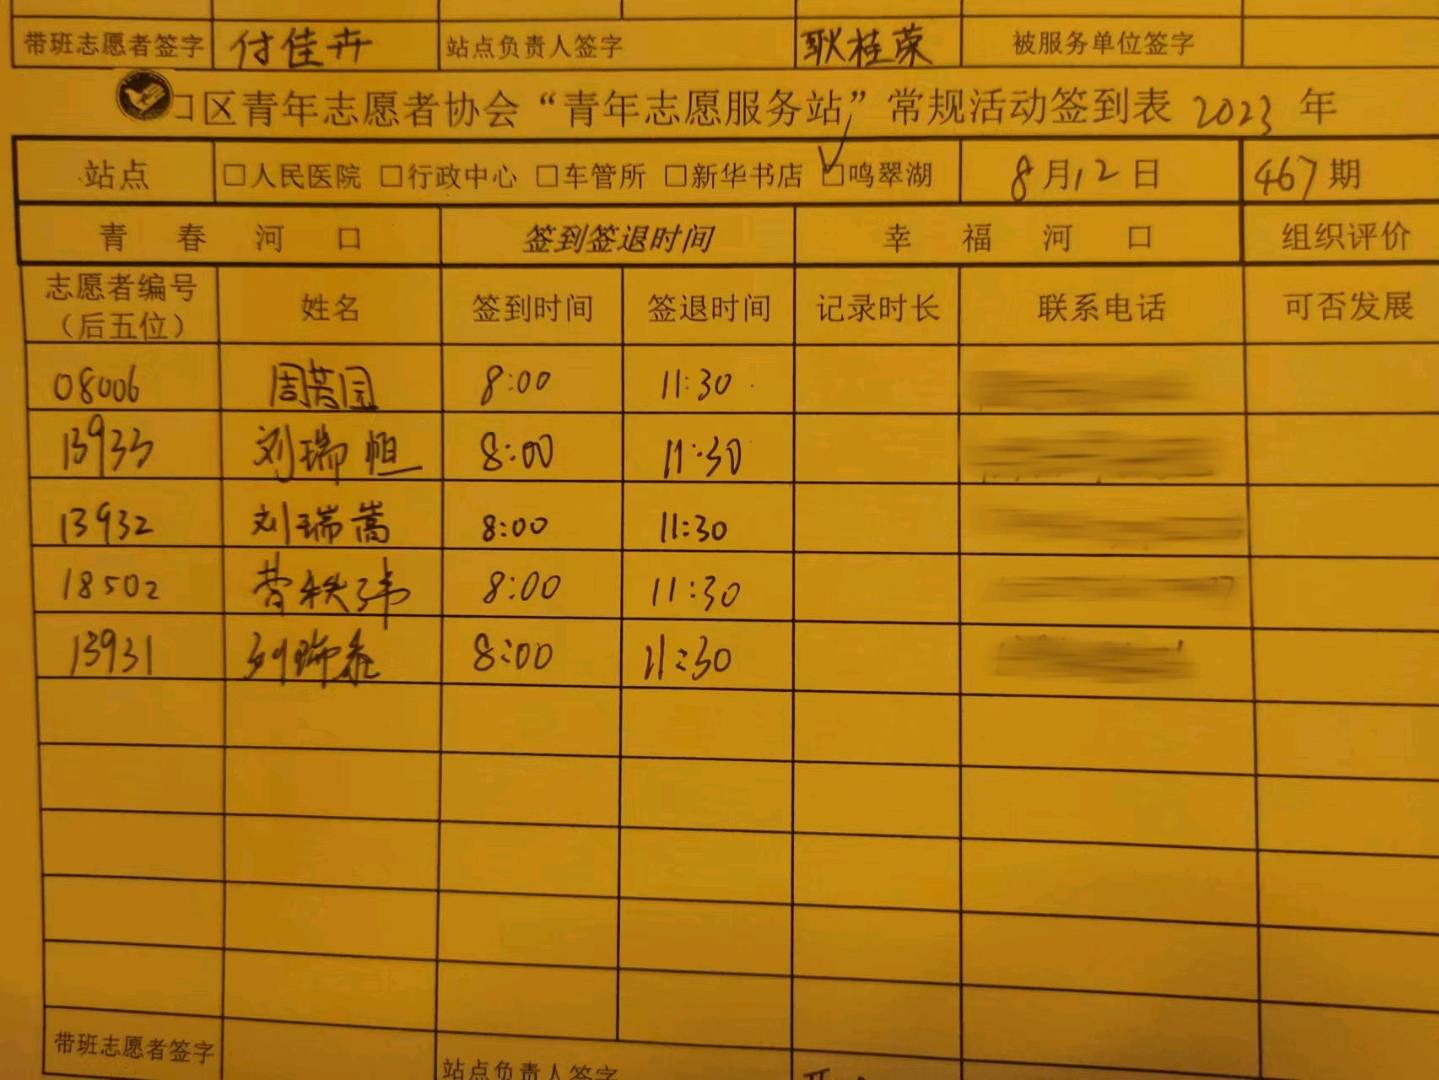 带班志愿者签字 付佳卉 站点负责人签字 耿桂荣 被服务单位签字
口区青年志愿者协会“青年志愿服务站”常规活动签到表 2023 年
站点 □人民医院 □行政中心 □车管所 □新华书店 □鸣翠湖 8月12日 467期
青春河口 签到签退时间 幸福河口 组织评价
志愿者编号
（后五位） 姓名 签到时间 签退时间 记录时长 联系电话 可否发展
08006 周英国 8:00 11:30
13933 刘瑞恒 8:00 11:30
13932 刘瑞嵩 8:00 11:30
18502 8:00 11:30
13931 刘瑞泰 8:00 11:30
带班志愿者签字 站点负责人签字